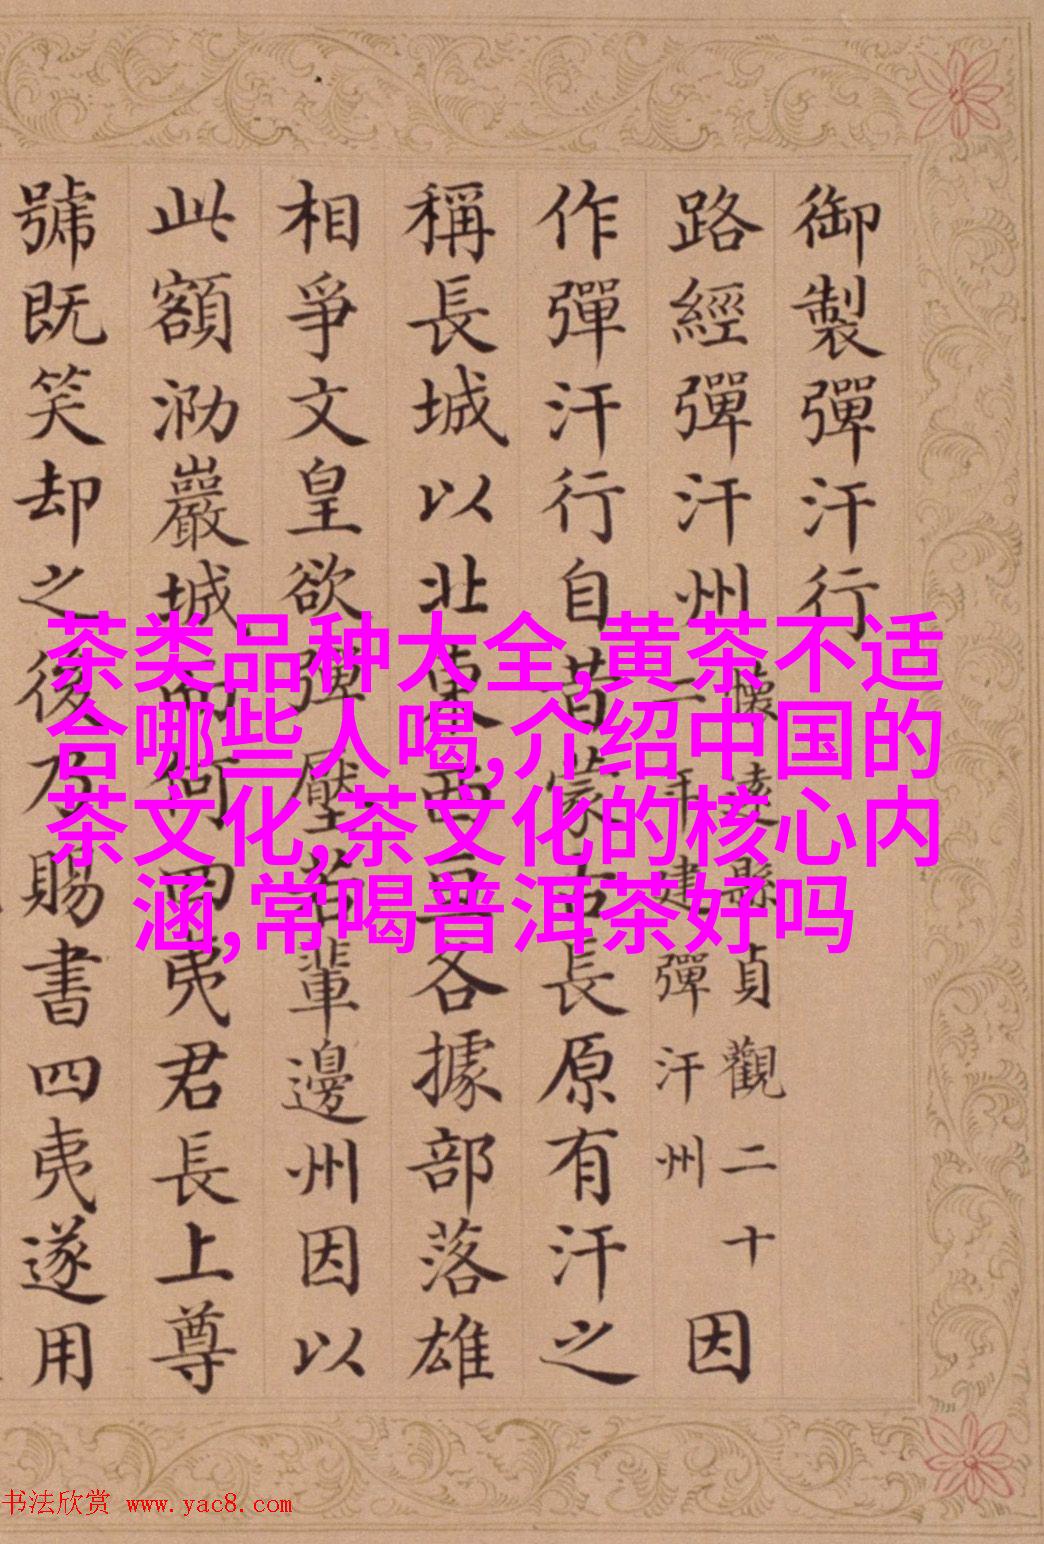 御製彈汗行
路經彈汗州
懷遠縣貞觀二十
一年建彈汗州
因
作彈汗行自昔蒙古長原有汗之
稱長城以北東西亘各據部落雄
相爭文皇欲彈壓若輩邊州因以
此額泐巖城而何四夷君長上尊
號既笑却之後乃賜書四夷遂用
茶类品种大全,黄茶不适
合哪些人喝,介绍中国的
茶文化,茶文化的核心内
涵,常喝普洱茶好吗
书法欣赏 www.yac8.com